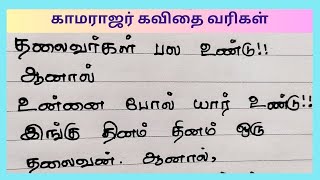 காமராஜர் கவிதை வரிகள்
தலைவர்கள் பல உண்டு!!
ஆனால்
உன்னை போல் யார் உண்டு!!
இங்கு தினம் தினம் ஒரு
தலைவன். ஆனால்,